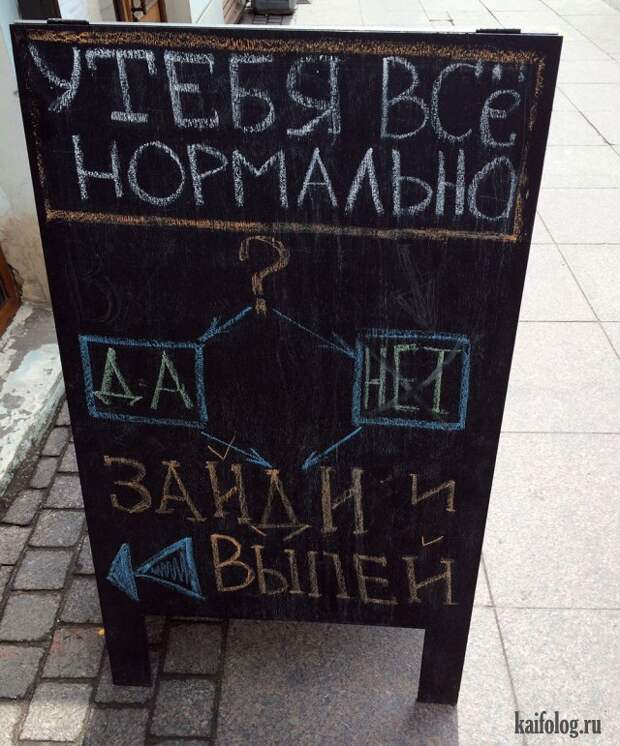 У ТЕБЯ ВСё
НОРМАЛЬНО
?
ДА НЕТ
ЗАЙДИ И
ВЫПЕЙ
kaifolog.ru